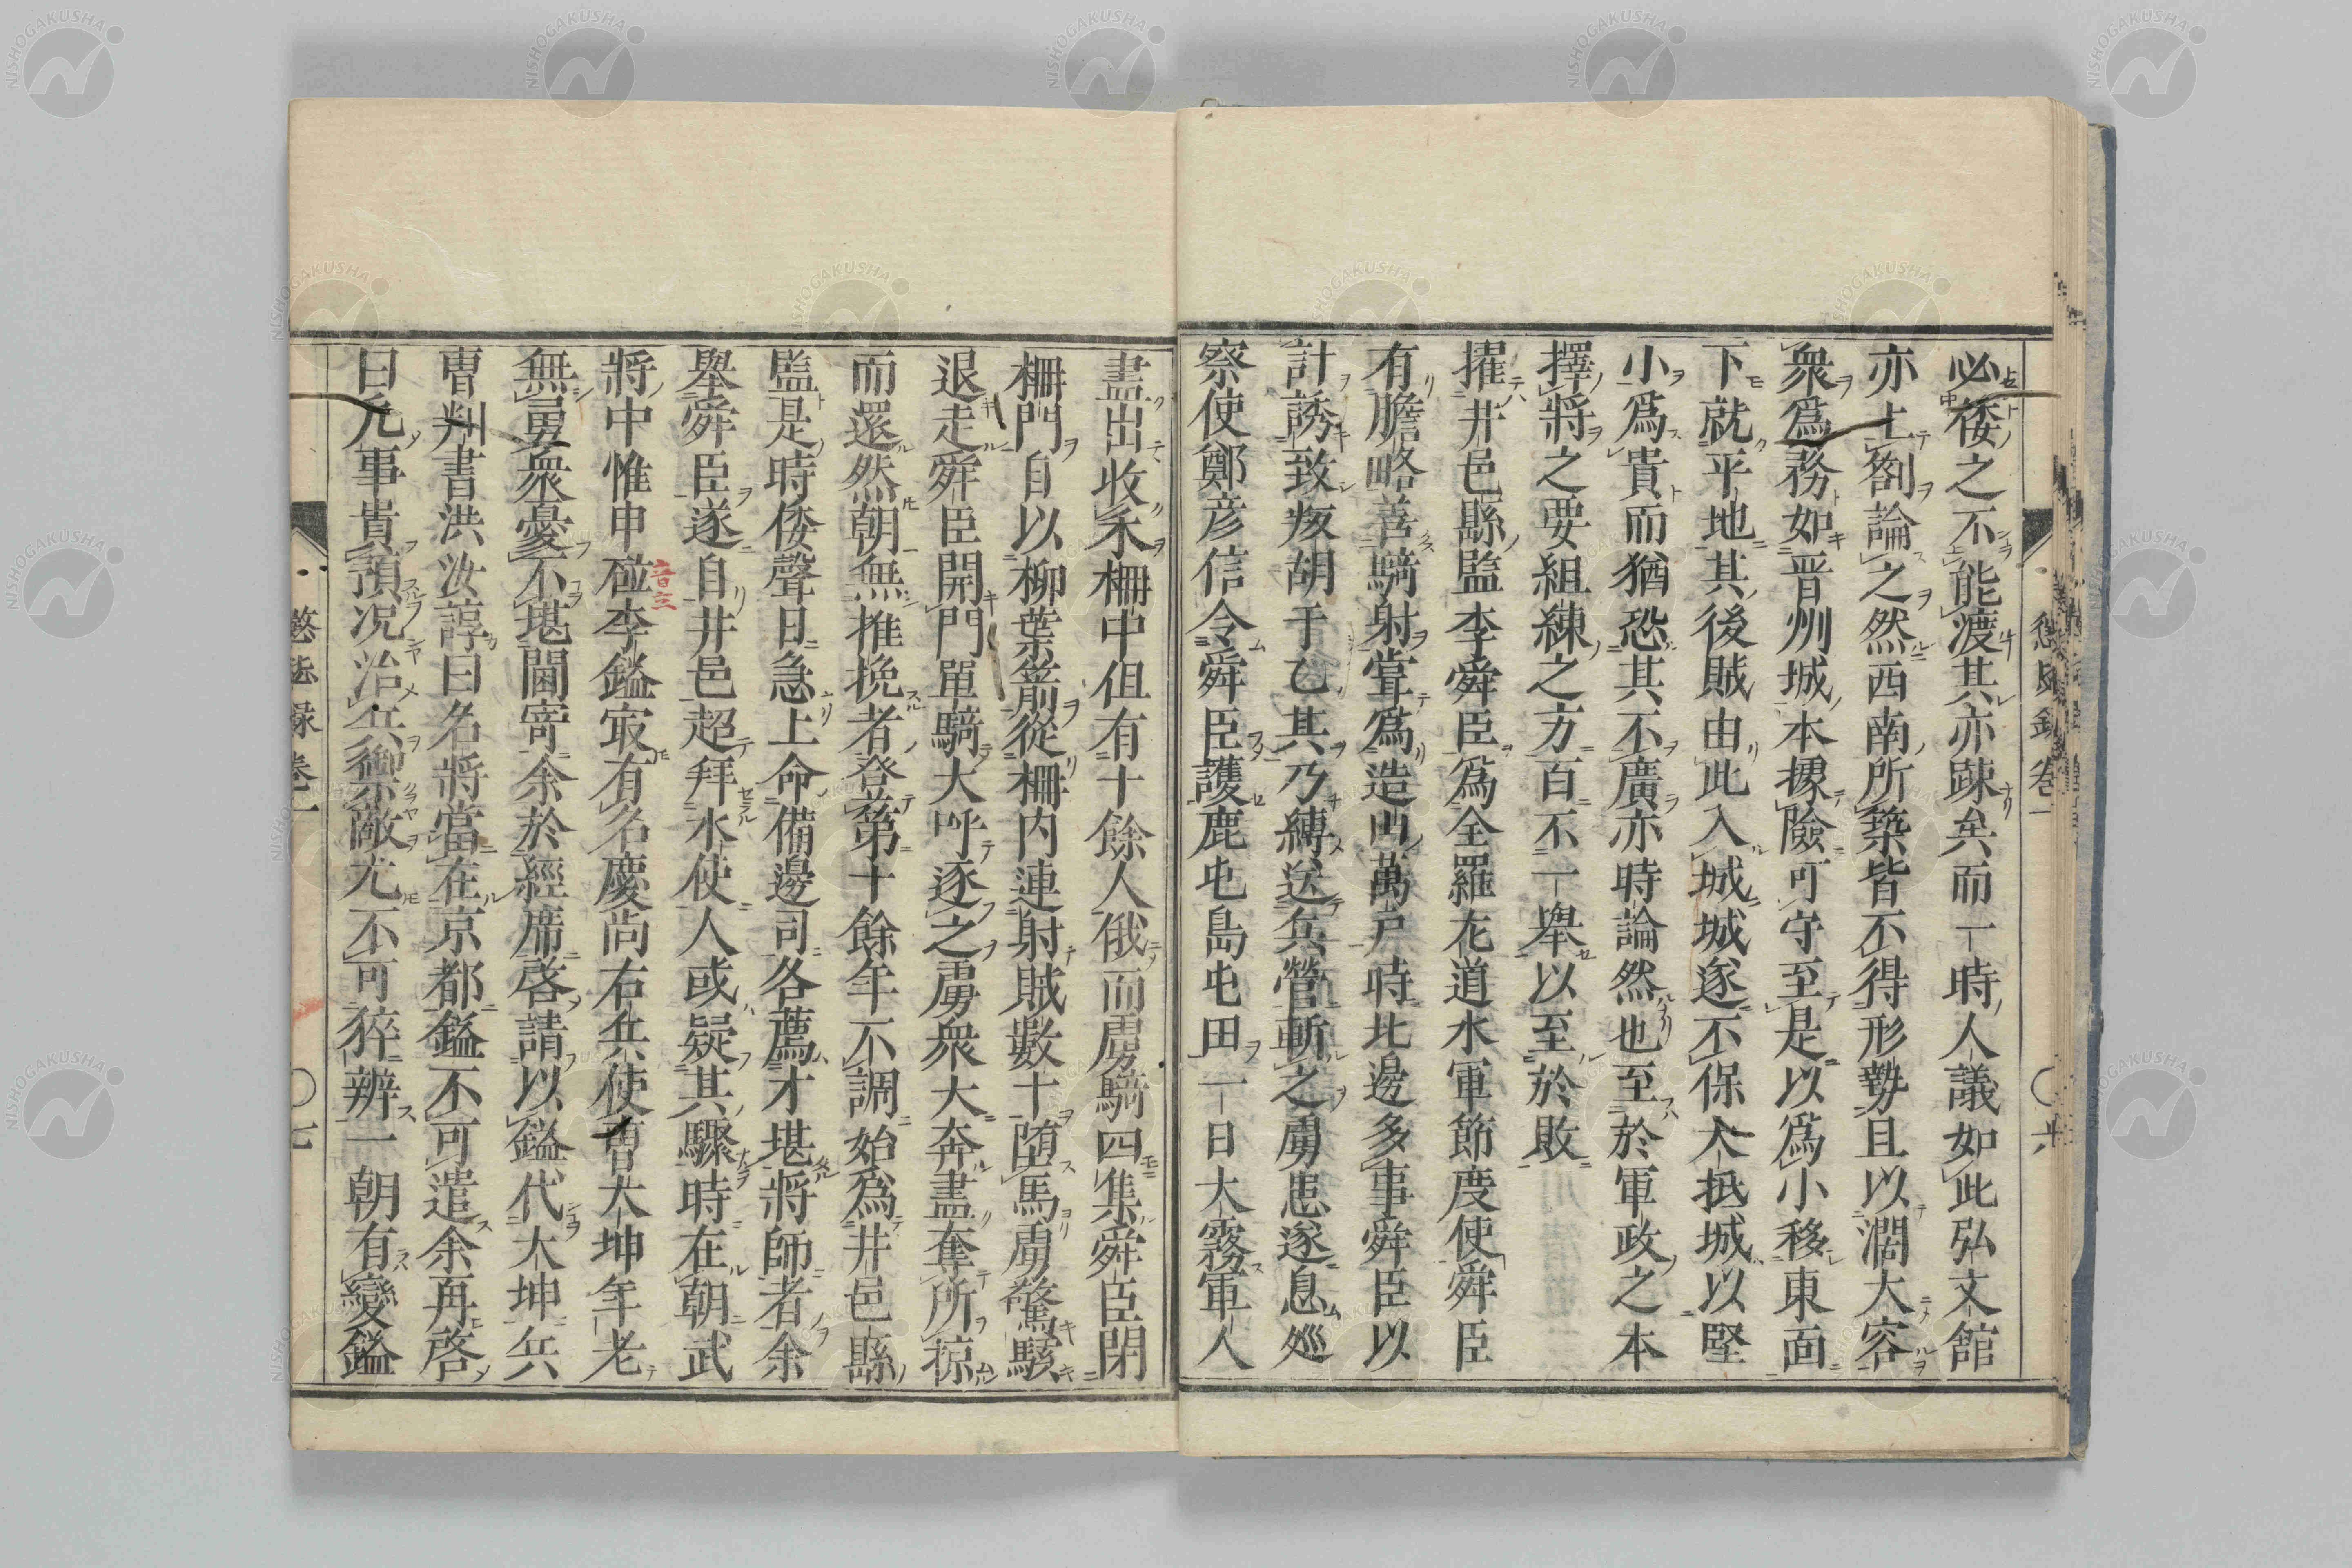 必倭之不能渡其亦疎矣而一時人議如此弘文館
亦上劄論之然西南所築皆不得形勢且以濶大容
衆爲務如晋州城本據險可守至是以爲小移東面
下就平地其後賊由此入城城遂不保大抵城以堅
小爲貴而猶恐其不廣亦時論然也至於軍政之本
擇將之要組練之方百不一舉以至於敗
擢井邑縣監李舜臣爲全羅左道水軍節度使舜臣
有膽略善騎射甞爲造山萬戸時北邊多事舜臣以
計誘致叛胡于乞其乃縛送兵營斬之虜患遂息巡
察使鄭彦信令舜臣護鹿屯島屯田一日大霧軍人
盡出收禾柵中但有十餘人俄而虜騎四集舜臣閉
柵門自以柳葉箭從柵内連射賊數十墮馬虜驚駭
退走舜臣開門單騎大呼逐之虜衆大奔盡奪所掠
而還然朝無推挽者登第十餘年不調始爲井邑縣
監是時倭聲日急上命備邊司各薦才堪將師者余
舉舜臣遂自井邑超拜水使人或疑其驟時在朝武
將中惟申砬李鎰寂有名慶尚右兵使曺大坤年老
音立
無勇衆憂不堪閫寄余於經席啓請以鎰代大坤兵
曺判書洪汝諄曰名將當在京都鎰不可遣余再啓
曰凡事貴預况治兵禦敵尤不可猝辨一朝有變鎰
懲毖録卷一
〇六
懲毖録卷一
〇七
NISHOGAKUSHA